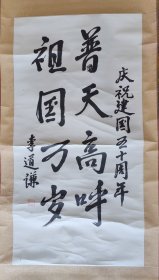 庆祝建国五十周年
普天高呼
祖国万岁
李道谦